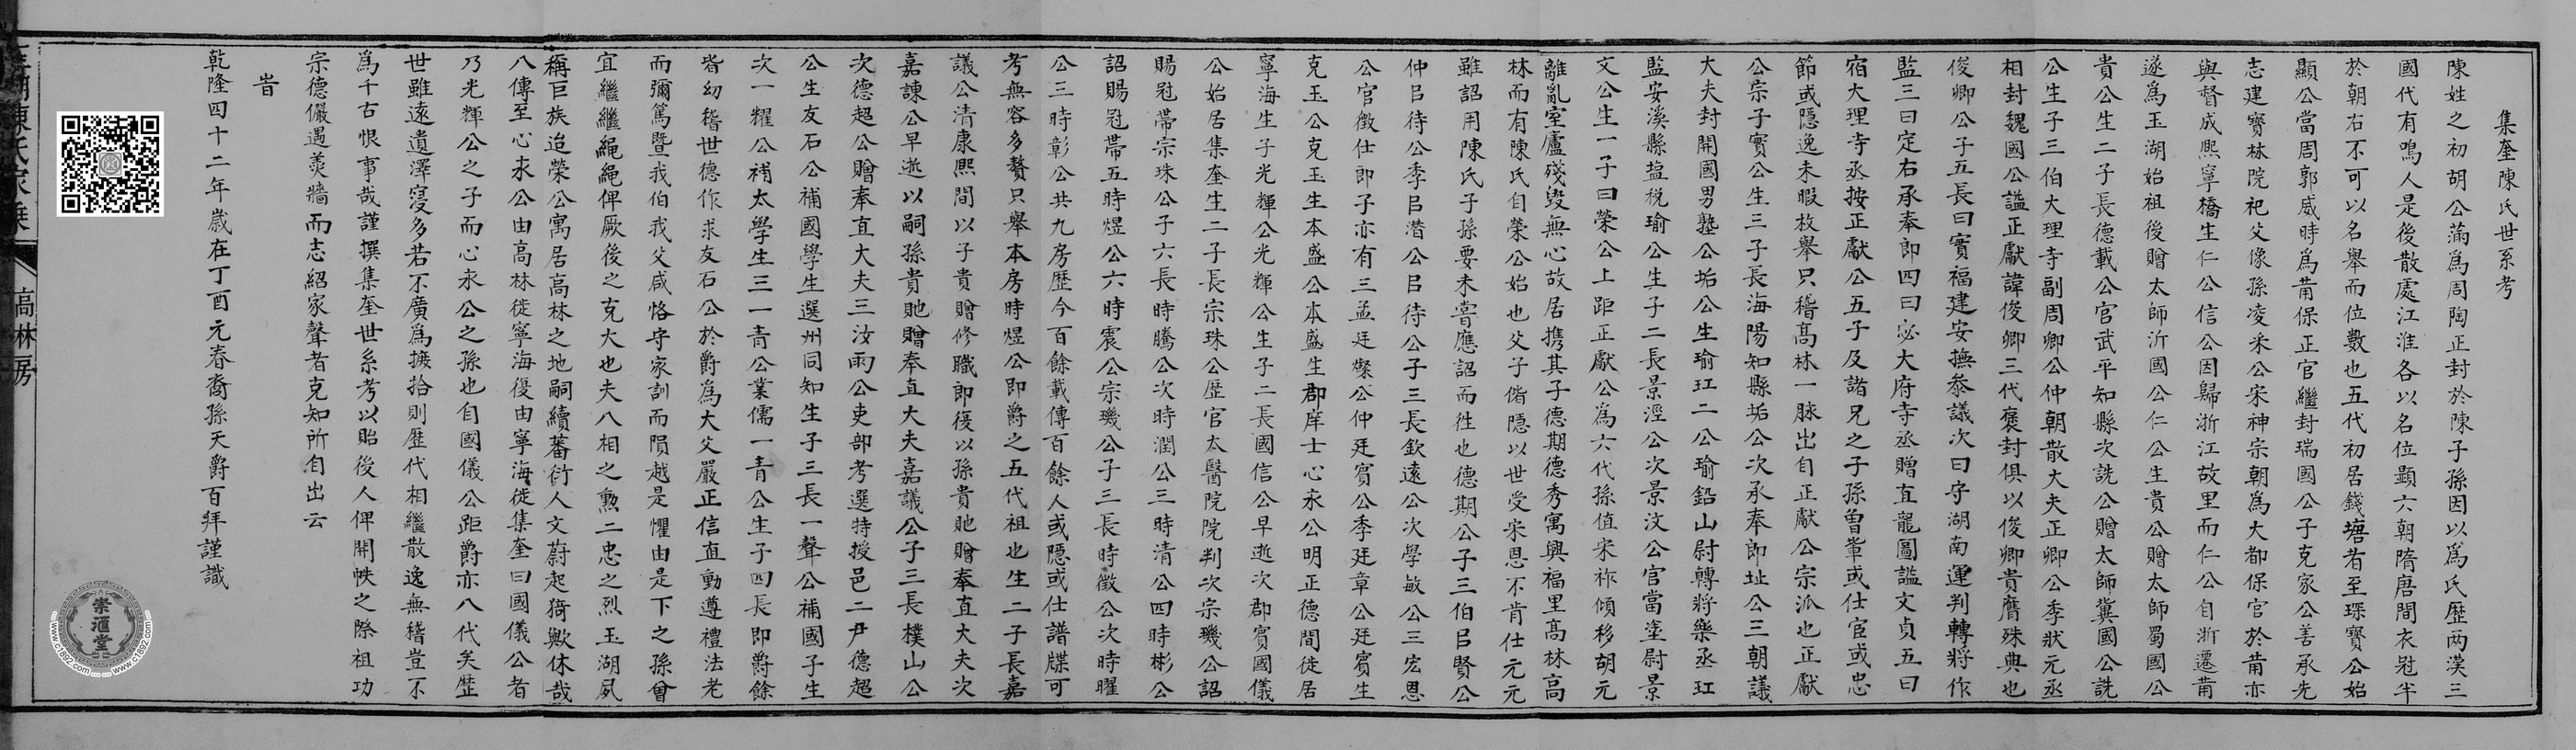 集奎陳氏世系考
陳姓之初胡公滿為周陶正封於陳子孫因以為氏歷两漢三
國代有鳴人是後散處江淮各以名位顯六朝隋唐間衣冠半
於朝右不可以名舉而位數也五代初居錢塘者至琛寳公始
顯公當周郭威時為莆保正官繼封瑞國公子克家公善承先
志建寳林院祀父像孫凌釆公宋神宗朝為大都保官於莆亦
與督成熈寧橋生仁公信公因歸浙江故里而仁公自浙遷莆
遂為玉湖始祖後贈太師沂國公仁公生貴公贈太師蜀國公
貴公生二子長德載公官武平知縣次詵公贈太師冀國公詵
公生子三伯大理寺副周卿公仲朝散大夫正卿公季狀元丞
相封魏國公謚正獻諱俊卿三代褒封俱以俊卿貴膺殊典也
俊卿公子五長曰實福建安撫叅議次曰守湖南運判轉將作
監三曰定右承奉郎四曰宓大府寺丞贈直龍圖謚文貞五曰
宿大理寺丞按正獻公五子及諸兄之子孫曽軰或仕宦或忠
節或隱逸未暇枚舉只稽高林一脉出自正獻公宗派也正獻
公宗子實公生三子長海陽知縣垢公次承奉郎址公三朝議
大夫封開國男塾公垢公生瑜玒二公瑜鉛山尉轉將樂丞玒
監安溪縣塩税瑜公生子二長景淫公次景汶公官當塗尉景
文公生一子曰榮公上距正獻公為六代孫值宋祚傾移胡元
離亂室廬殘毀無心故居携其子德期德秀寓興福里高林高
林而有陳氏自榮公始也父子偹隱以世受宋恩不肯仕元元
雖詔用陳氏子孫要未甞應詔而徃也德期公子三伯㠯賢公
仲㠯待公季㠯潜公㠯待公子三長欽遠公次學敏公三宏恩
公官徴仕郎子亦有三孟廷爕公仲廷賓公季廷章公廷賓生
克玉公克玉生本盛公本盛生郡庠士心永公明正德間徙居
寧海生子光輝公光輝公生子二長國信公早逝次郡賓國儀
公始居集奎生二子長宗珠公歷官太醫院院判次宗璣公詔
賜冠帯宗珠公子六長時騰公次時潤公三時清公四時彬公
詔賜冠帯五時煜公六時震公宗璣公子三長時徴公次時曜
公三時彰公共九房歷今百餘載傳百餘人或隱或仕譜牒可
考無容多贅只舉本房時煜公即爵之五代祖也生二子長嘉
議公清康熈間以子貴贈修職郎後以孫貴貤贈奉直大夫次
嘉諫公早逝以嗣孫貴貤贈奉直大夫嘉議公子三長樸山公
次德超公贈奉直大夫三汝雨公吏部考選特授邑二尹德超
公生友石公補國學生選州同知生子三長一聲公補國子生
次一耀公補太學生三一青公業儒一青公生子四長即爵餘
皆幼稽世德作求友石公於爵為大父嚴正信直動遵禮法老
而彌篤暨我伯我父咸恪守家訓而隕越是懼由是下之孫曾
宜繼繼繩繩俾厥後之克大也夫八相之勲二忠之烈玉湖夙
稱巨族迨榮公寓居高林之地嗣續蕃衍人文蔚起猗歟休哉
八傳至心永公由高林徙寧海復由寧海徙集奎曰國儀公者
乃光輝公之子而心永公之孫也自國儀公距爵亦八代矣歴
世雖遠遺澤寖多若不廣為摭拾則歷代相繼散逸無稽豈不
為千古恨事哉謹撰集奎世系考以貽後人俾開帙之際祖功
宗德儼遇羮墻而志紹家聲者克知所自出云
旹
乾隆四十二年歳在丁酉元春裔孫天爵百拜謹識
玉湖陳氏家乘
高林房
崇滙堂
www.c1892.com
www.c1892.com